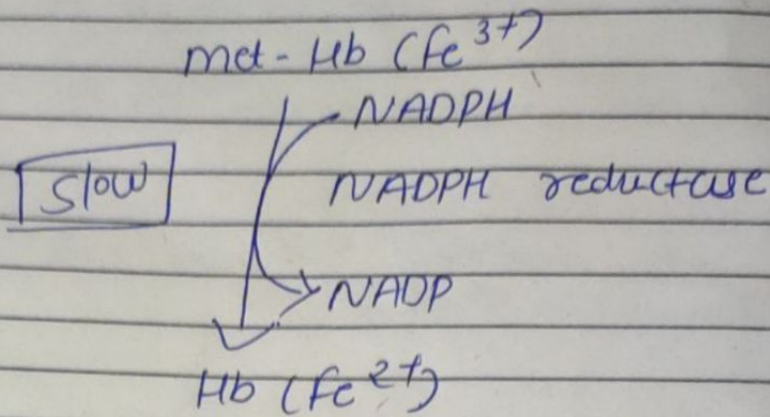 met-Hb (Fe³⁺)
NADPH
Slow
NADPH reductase
NADP
Hb (Fe²⁺)